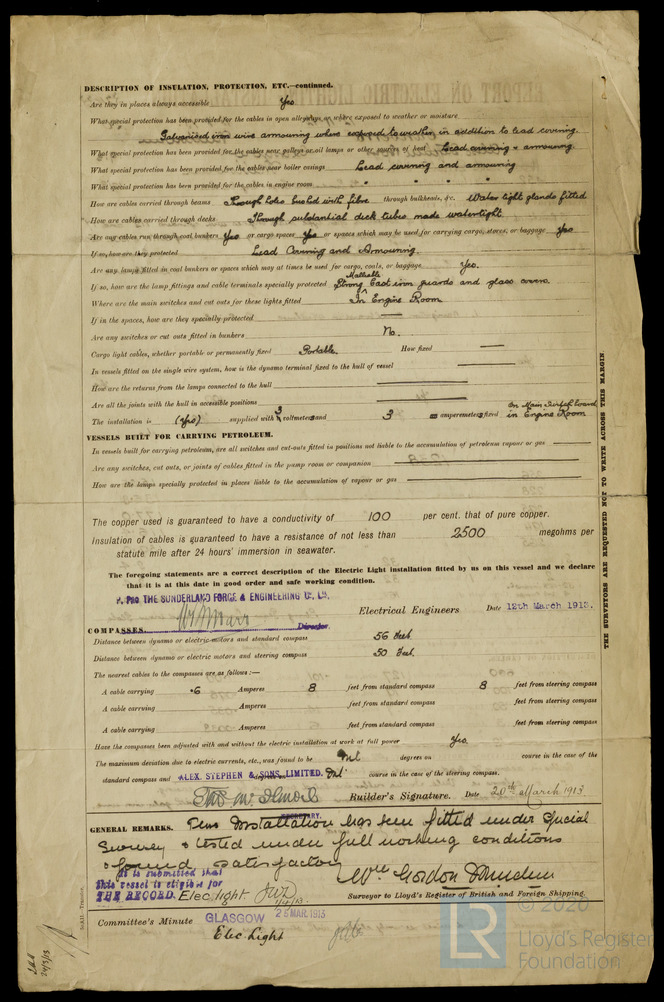 DESCRIPTION OF INSULATION, PROTECTION, ETC.—continued.
Are they in places always accessible Yes
What special protection has been provided for the cables in open alleyways or where exposed to weather or moisture
Galvanised iron wire armouring where exposed to weather in addition to lead covering.
What special protection has been provided for the cables near galleys or oil lamps or other sources of heat Lead covering & armouring
What special protection has been provided for the cables near boiler casings Lead covering and armouring
What special protection has been provided for the cables in engine room " " " "
How are cables carried through beams Through holes bushed with fibre through bulkheads, &c. Water tight glands fitted
How are cables carried through decks Through substantial deck tubes made watertight
Are any cables run through coal bunkers Yes or cargo spaces Yes or spaces which may be used for carrying cargo, stores, or baggage Yes
If so, how are they protected Lead Covering and Armouring.
Are any lamps fitted in coal bunkers or spaces which may at times be used for cargo, coals, or baggage Yes.
If so, how are the lamp fittings and cable terminals specially protected Strong Malleable Cast iron guards and glass covers.
Where are the main switches and cut outs for these lights fitted In Engine Room
If in the spaces, how are they specially protected —
Are any switches or cut outs fitted in bunkers No.
Cargo light cables, whether portable or permanently fixed Portable. How fixed —
In vessels fitted on the single wire system, how is the dynamo terminal fixed to the hull of vessel —
How are the returns from the lamps connected to the hull —
Are all the joints with the hull in accessible positions —
The installation is (Yes) supplied with 3 voltmeters and 3 amperemeters fixed on Main Switch board in Engine Room
VESSELS BUILT FOR CARRYING PETROLEUM.
In vessels built for carrying petroleum, are all switches and cut-outs fitted in positions not liable to the accumulation of petroleum vapour or gas —
Are any switches, cut outs, or joints of cables fitted in the pump room or companion —
How are the lamps specially protected in places liable to the accumulation of vapour or gas —
The copper used is guaranteed to have a conductivity of 100 per cent. that of pure copper.
Insulation of cables is guaranteed to have a resistance of not less than 2500 megohms per
statute mile after 24 hours' immersion in seawater.
The foregoing statements are a correct description of the Electric Light installation fitted by us on this vessel and we declare
that it is at this date in good order and safe working condition.
P. PRO THE SUNDERLAND FORGE & ENGINEERING Co. Ld.
Director. Electrical Engineers Date 12th March 1913.
COMPASSES.
Distance between dynamo or electric motors and standard compass 56 feet
Distance between dynamo or electric motors and steering compass 50 feet.
The nearest cables to the compasses are as follows:—
A cable carrying .6 Amperes 8 feet from standard compass 8 feet from steering compass
A cable carrying Amperes feet from standard compass feet from steering compass
A cable carrying Amperes feet from standard compass feet from steering compass
Have the compasses been adjusted with and without the electric installation at work at full power Yes.
The maximum deviation due to electric currents, etc., was found to be Nil degrees on course in the case of the
standard compass and Nil course in the case of the steering compass.
ALEX. STEPHEN & SONS, LIMITED.
SECRETARY.
Builder's Signature. Date 20th March 1913
GENERAL REMARKS. This Installation has been fitted under Special
Survey & tested under full working conditions
& found satisfactory
It is submitted that
this vessel is eligible for
THE RECORD. Elec light 1/4/13
Wm Gordon
Surveyor to Lloyd's Register of British and Foreign Shipping.
Committee's Minute GLASGOW 25 MAR. 1913
Elec Light
THE SURVEYORS ARE REQUESTED NOT TO WRITE ACROSS THIS MARGIN
© 2020
LR
Lloyd's Register
Foundation